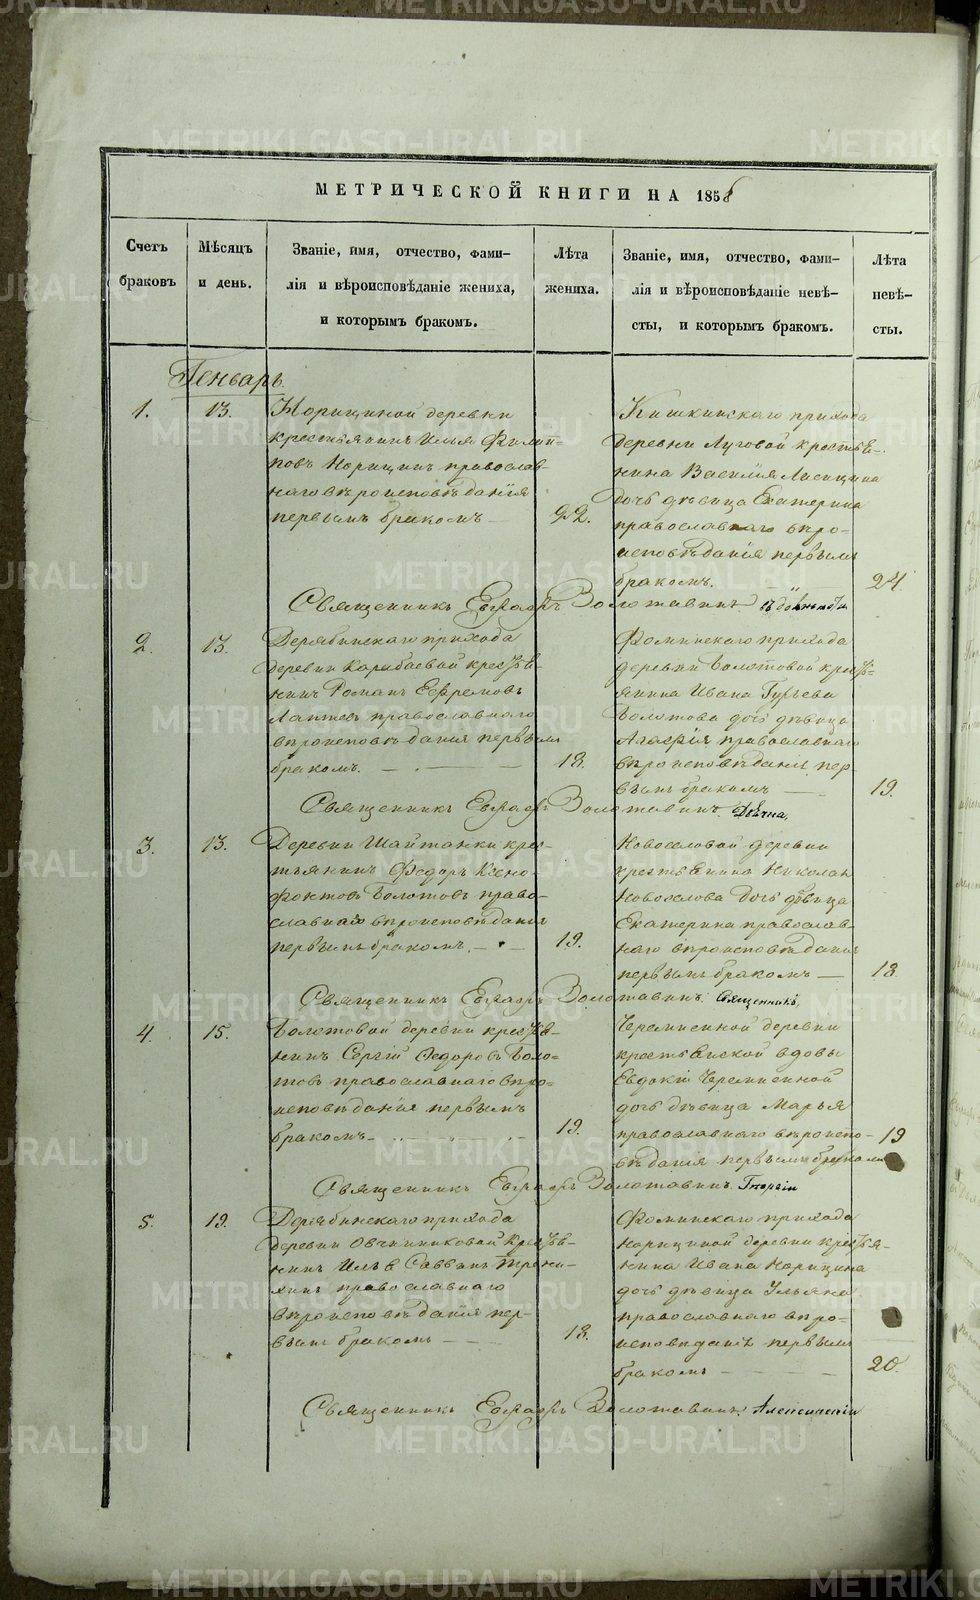 МЕТРИЧЕСКОЙ КНИГИ НА 1858
Счетъ
браковъ
Мѣсяцъ
и день.
Званіе, имя, отчество, фами-
лія и вѣроисповѣданіе жениха,
и которымъ бракомъ.
Лѣта
жениха.
Званіе, имя, отчество, фами-
лія и вѣроисповѣданіе невѣ-
сты, и которымъ бракомъ.
Лѣта
невѣ-
сты.
Генварь
1.
13.
Норициной деревни
крестьянинъ Илья Филип-
повъ Норицинъ православ-
наго вѣроисповѣданія
первымъ бракомъ
22.
Кишкинскаго прихода
деревни Луговой крестья-
нина Василія Лисицина
дочь дѣвица Екатерина
православнаго вѣро-
исповѣданія первымъ
бракомъ.
24.
Священникъ Евграфъ Золотавинъ.
2.
13.
Дерябинскаго прихода
деревни Карабаевой крестья-
нинъ Романъ Ефремовъ
Лаптевъ православнаго
вѣроисповѣданія первымъ
бракомъ.
18.
Фоминскаго прихода
деревни Болотовой кресть-
янина Ивана Гурьева
Болотова дочь дѣвица
Агафія православнаго
вѣроисповѣданія пер-
вымъ бракомъ
19.
Священникъ Евграфъ Золотавинъ.
3.
13.
Деревни Шайтанки крес-
тьянинъ Федоръ Ксено-
фонтовъ Болотовъ право-
славнаго вѣроисповѣданія
первымъ бракомъ.
19.
Новоселовой деревни
крестьянина Николая
Новоселова дочь дѣвица
Екатерина православ-
наго вѣроисповѣданія
первымъ бракомъ
18.
Священникъ Евграфъ Золотавинъ. Священникъ
4.
15.
Болотовой деревни крестья-
нинъ Сергій Федоровъ Боло-
товъ православнаго вѣро-
исповѣданія первымъ
бракомъ
19.
Черемисиной деревни
крестьянской вдовы
Евдокіи Черемисиной
дочь дѣвица Марья
православнаго вѣроиспо-
вѣданія первымъ бракомъ
19
Священникъ Евграфъ Золотавинъ. Георгій
5.
19.
Дерябинскаго прихода
деревни Овчинниковой крестья-
нинъ Илья Саввинъ
православнаго
вѣроисповѣданія пер-
вымъ бракомъ
18.
Фоминскаго прихода
Норициной деревни крестья-
нина Ивана Норицина
дочь дѣвица Ульяна
православнаго вѣро-
исповѣданія первымъ
бракомъ
20.
Священникъ Евграфъ Золотавинъ.
METRIKI.GASO-URAL.RU